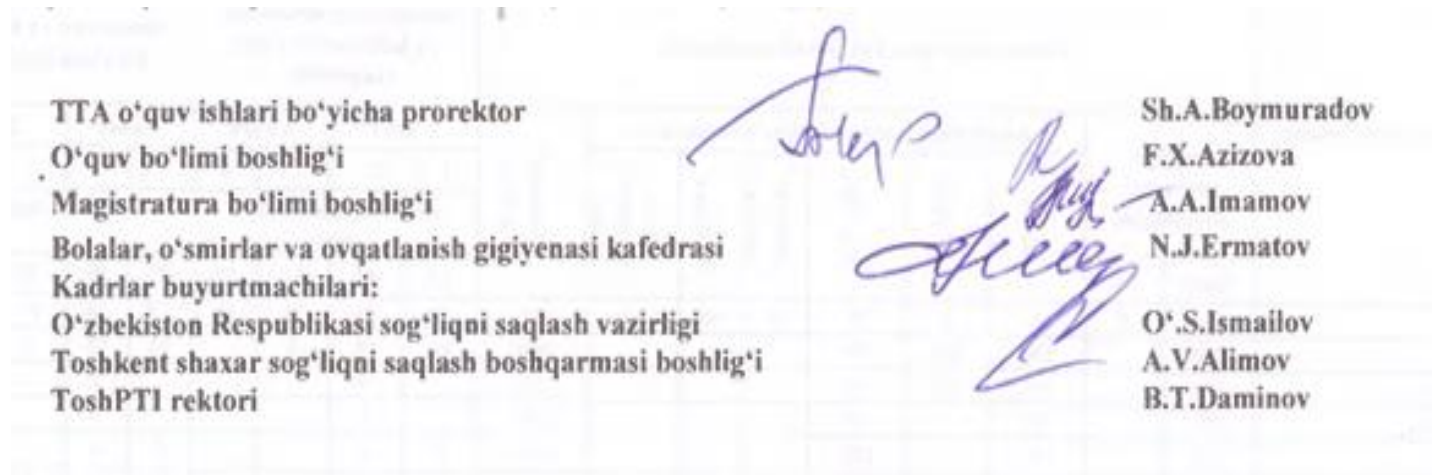 TTA o‘quv ishlari bo‘yicha prorektor Sh.A.Boymuradov
O‘quv bo‘limi boshlig‘i F.X.Azizova
Magistratura bo‘limi boshlig‘i A.A.Imamov
Bolalar, o‘smirlar va ovqatlanish gigiyenasi kafedrasi N.J.Ermatov
Kadrlar buyurtmachilari:
O‘zbekiston Respublikasi sog‘liqni saqlash vazirligi O‘.S.Ismailov
Toshkent shaxar sog‘liqni saqlash boshqarmasi boshlig‘i A.V.Alimov
ToshPTI rektori B.T.Daminov